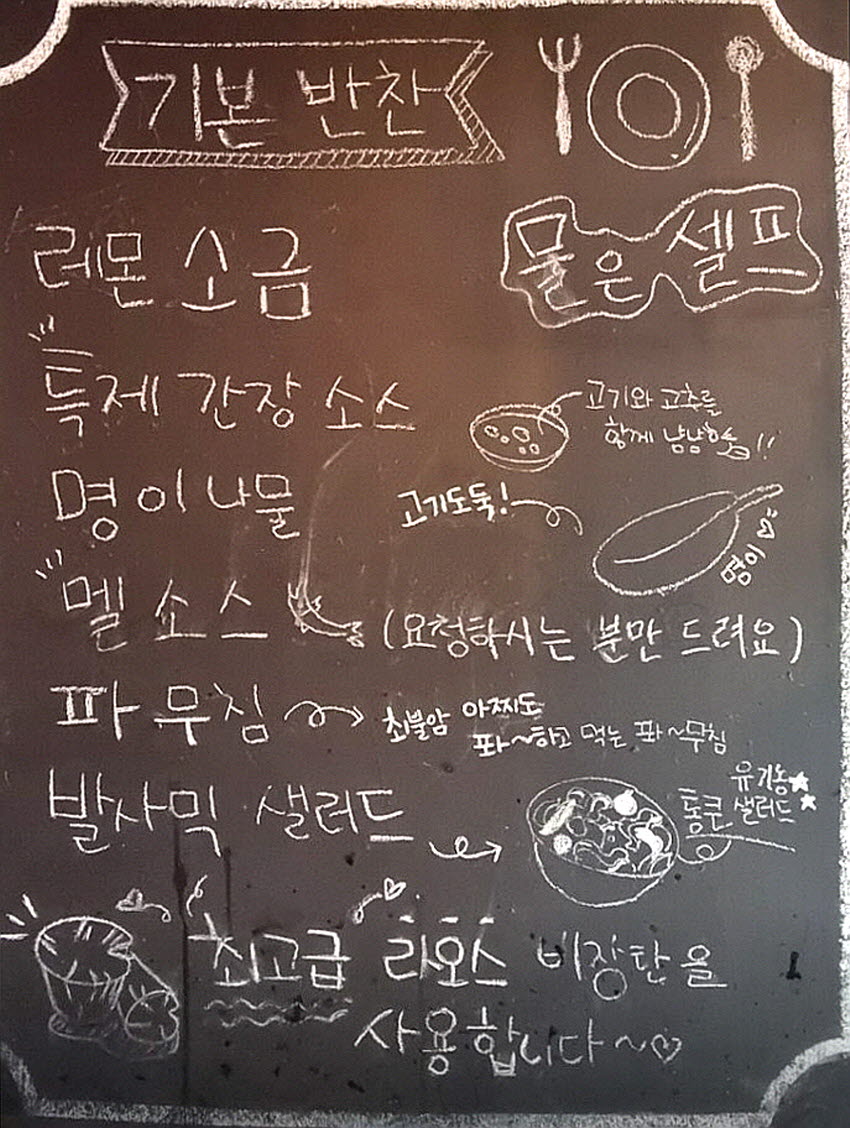 기본 반찬
물은 셀프
레몬 소금
특제 간장 소스
고기와 고추를
함께 냠냠
명이나물
고기도둑!
명이
멜 소스
(요청하시는 분만 드려요)
파 무침
최불암 아찌도
파~하고 먹는 파~무침
발사믹 샐러드
유기농
통큰 샐러드
최고급 라오스 비장탄을
사용합니다~♡